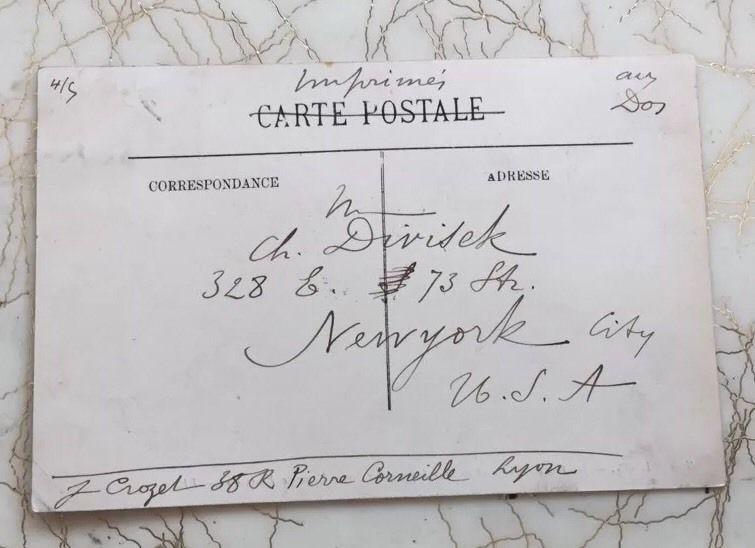 4/5 Imprimés au
CARTE POSTALE Dos
CORRESPONDANCE ADRESSE
M
Ch. Divisek
328 E. 73 Str.
Newyork City
U.S.A
J Crozet 38 R Pierre Corneille Lyon